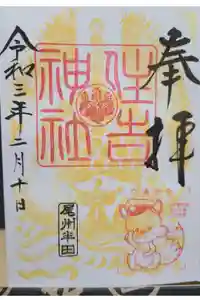 奉拝
住吉
神社
令和三年二月十日
尾州半田